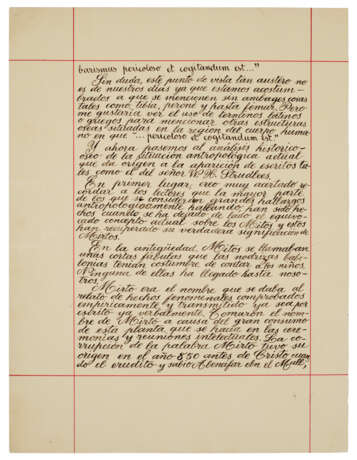 barismus pericoloso et cogitandum est..."
Sin duda, este punto de vista tan austero no
es de nuestros días ya que estamos acostum-
brados a que se mencionen sin ambages cosas
tales como tibia, peroné y hasta femur. Pero
me gustaría ver el uso de términos latinos
o griegos para mencionar otras estructuras
óseas situadas en la región del cuerpo huma-
no en que "...pericoloso et cogitandum est."
Y ahora pasemos al análisis histórico-
óseo de la situación antropológica actual
que da origen a la aparición de escritos ta-
les como el del señor W. H. Studlees.
En primer lugar, creo muy acertado re-
cordar a los lectores que la mayor parte
de los que se consideran grandes hallazgos
antropológicamente hablando han sido he-
chos cuando se ha dejado de lado el equivo-
cado concepto actual sobre los Mitos y estos
han recuperado su verdadera significación de
Mirtos.
En la antigüedad, Mitos se llamaban
unas cortas fábulas que las nodrizas babi-
lonias tenían costumbre de contar a los niños.
Ninguna de ellas ha llegado hasta noso-
tros.
Mirto era el nombre que se daba al
relato de hechos fenomenales comprobados
empíricamente y transmitido ya sea por
escrito ya verbalmente. Tomaron el nom-
bre de Mirto a causa del gran consumo
de esta planta que se hacía en las cere-
monias y reuniones intelectuales. La co-
rrupción de la palabra Mirto tuvo su
origen en el año 850 antes de Cristo cuan-
do el erudito y sabio Abenafar ebn el Mull,